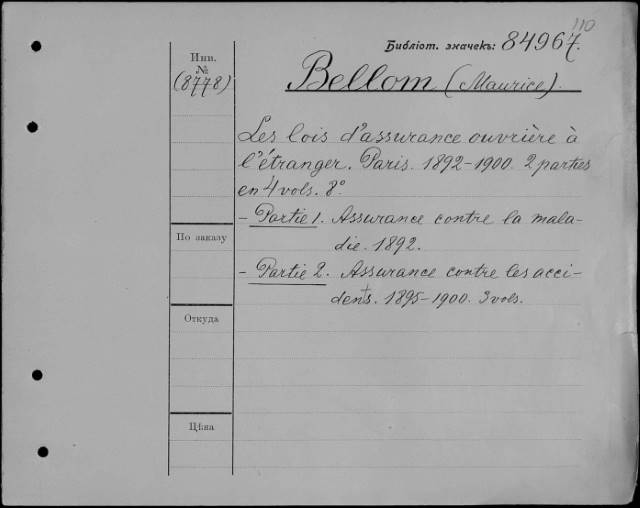 110
Библіот. значекъ: 84967.
Инн.
№
(8778)
Bellom (Maurice).
Les lois d'assurance ouvrière à
l'étranger. Paris. 1892-1900. 2 parties
en 4 vols. 8°
- Partie 1. Assurance contre la mala-
die. 1892.
По заказу
- Partie 2. Assurance contre les acci-
dents. 1895-1900. 3 vols.
Откуда
Цѣна